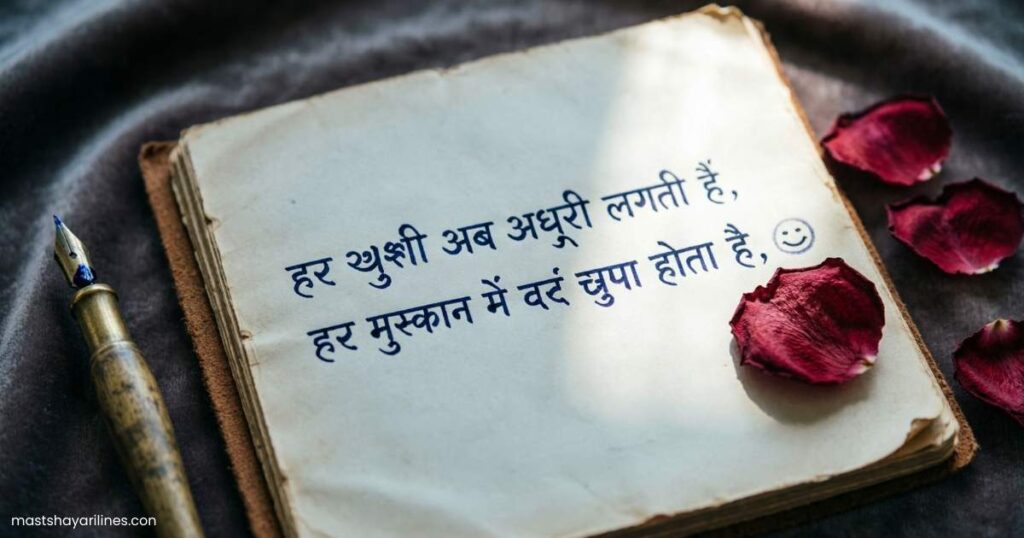 हर खुशी अब अधूरी लगती हैं,
हर मुस्कान में वर्द चुपा होता है, ☺
mastshayarilines.com